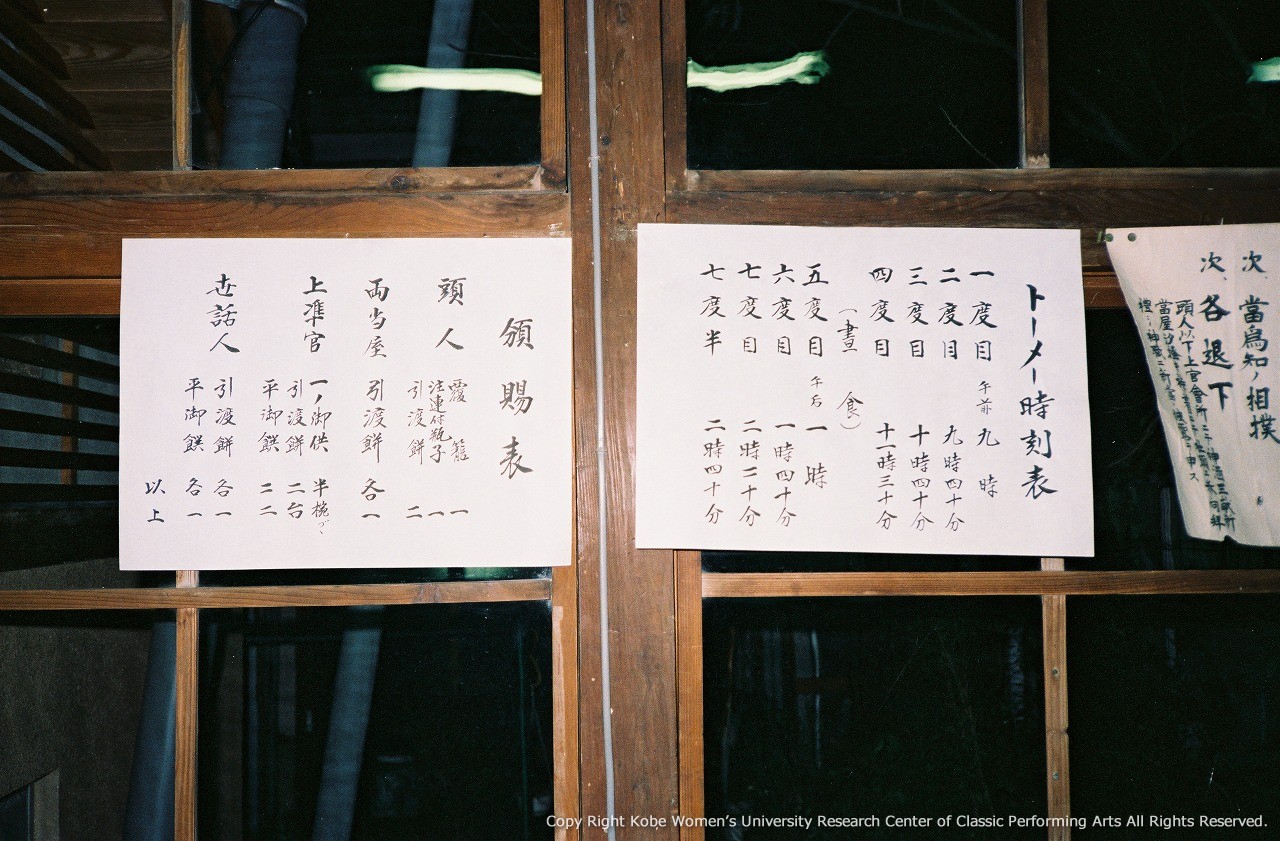 次、當為知ノ相撲
次、各退下
トーメー時刻表
一度目 午前 九時
二度目 九時四十分
三度目 十時四十分
四度目 十一時三十分
(晝食)
五度目 午后 一時
六度目 一時四十分
七度目 二時二十分
七度半 二時四十分
頒賜表
頭人 霞籠 一
注連付瓶子 一
引渡餅 二
両当屋 引渡餅 各一
上準官 一ノ御供 半椀ヅヽ
引渡餅 二台
平御饌 二二
世話人 引渡餅 各一
平御饌 各一
以上
Copy Right Kobe Women's University Research Center of Classic Performing Arts All Rights Reserved.